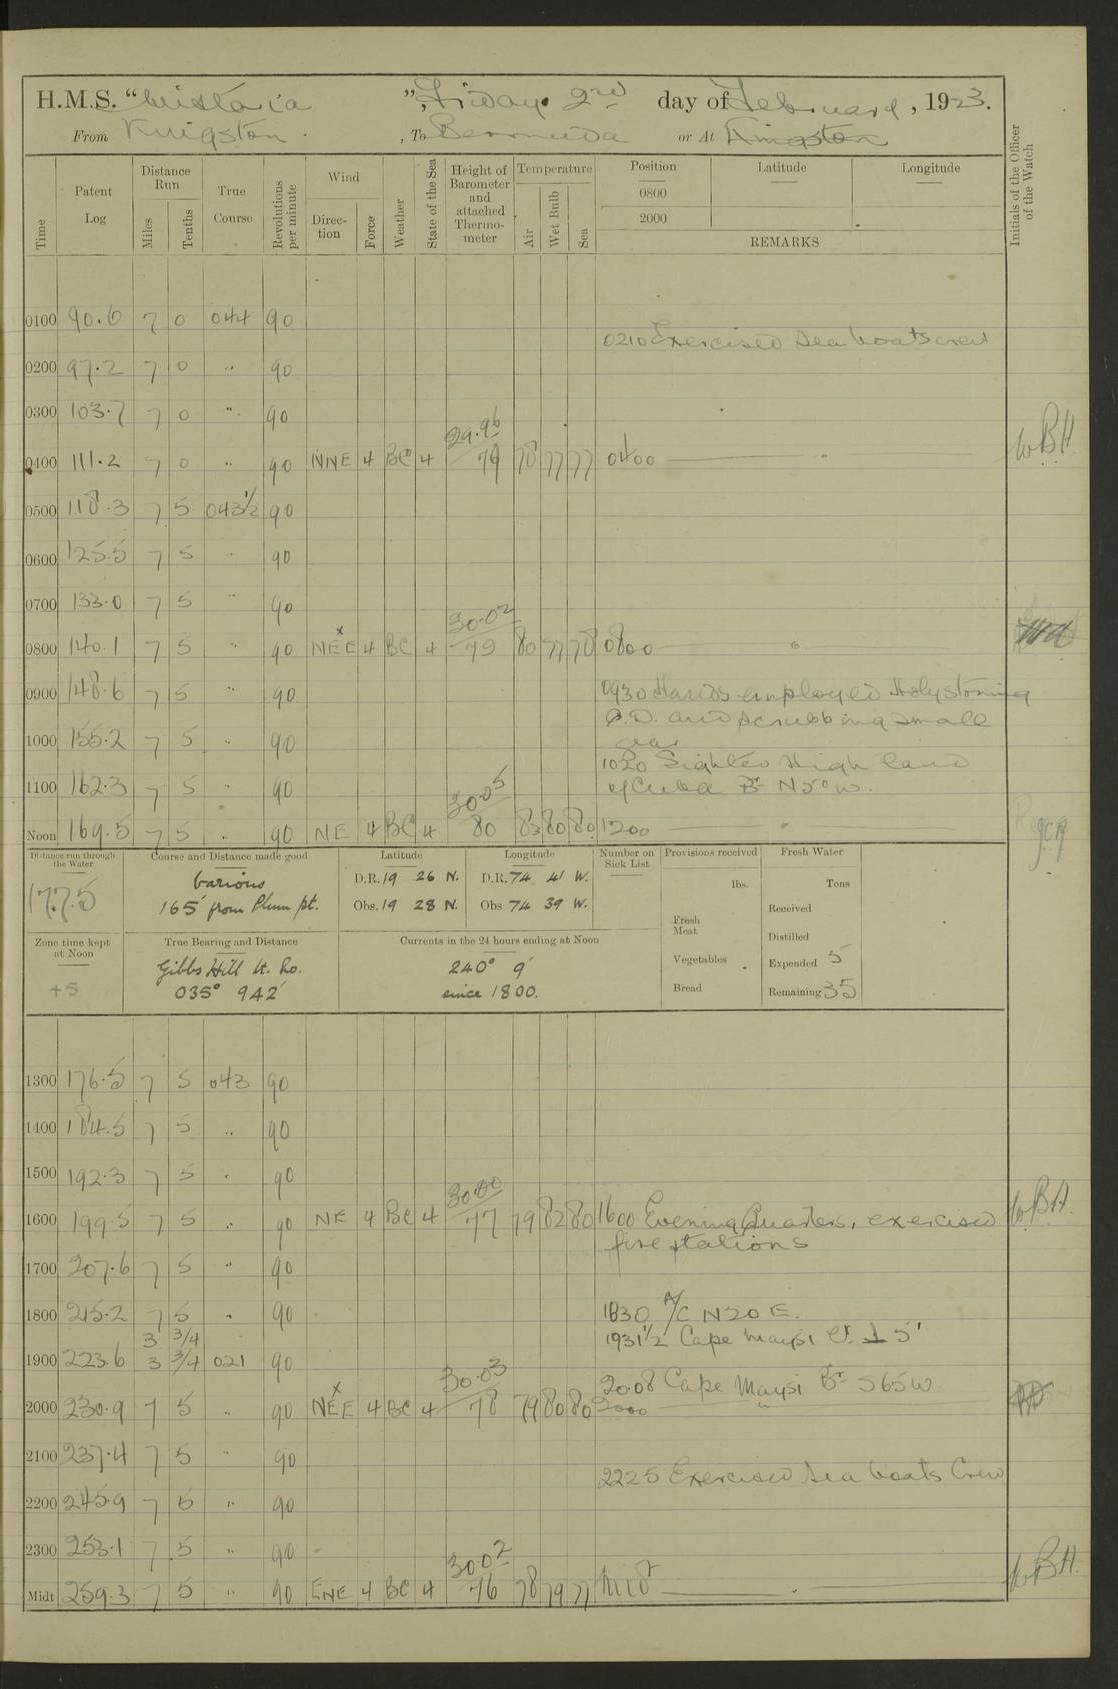 H.M.S. "Wistaria", Friday 2nd day of February, 1923.
From Kingston, To Bermuda or At Kingston
Time
Patent Log
Distance Run
Miles
Tenths
True Course
Revolutions per minute
Wind
Direction
Force
Weather
State of the Sea
Height of Barometer and attached Thermometer
Temperature
Air
Wet Bulb
Sea
Position
0800
2000
Latitude
Longitude
REMARKS
Initials of the Officer of the Watch
0100 90.6 7 0 044 90
0210 Exercised sea boats crew
0200 97.2 7 0 " 90
0300 103.7 7 0 " 90
29.96
0400 111.2 7 0 " 90 NNE 4 BC 4 79 78 77 77 0400 " WBH
0500 118.3 7 5 043½ 90
0600 125.5 7 5 " 90
0700 133.0 7 5 " 90
30.02
0800 140.1 7 5 " 90 NE x E 4 BC 4 79 80 77 78 0800 "
0900 148.6 7 5 " 90
0930 Hands employed Holystoning
Q.D. and scrubbing small
gear
1000 155.2 7 5 " 90
1020 Sighted High land
of Cuba Br N50W.
1100 162.3 7 5 " 90
30.05
Noon 169.5 7 5 " 90 NE 4 BC 4 80 83 80 80 1200 "
Distance run through the Water
177.5
Course and Distance made good
Various
165' from Plum pt.
Latitude
D.R. 19 26 N.
Obs. 19 28 N.
Longitude
D.R. 74 41 W.
Obs 74 39 W.
Number on Sick List
Provisions received
lbs.
Fresh Meat
Vegetables
Bread
Fresh Water
Tons
Received
Distilled
Expended 5
Remaining 35
Zone time kept at Noon
+5
True Bearing and Distance
Gibbs Hill Lt. Ho.
035° 942'
Currents in the 24 hours ending at Noon
240° 9'
since 1800.
1300 176.5 7 5 043 90
1400 184.5 7 5 " 90
1500 192.3 7 5 " 90
30.00
1600 199.5 7 5 " 90 NE 4 BC 4 77 79 82 80 1600 Evening Quarters, exercised WBH.
fire stations
1700 207.6 7 5 " 90
1800 215.2 7 5 " 90
1830 A/C N20E.
3 3/4
1931½ Cape Maysi Lt. ⊥ 5'
1900 223.6 3 3/4 021 90
30.03
2008 Cape Maysi Br S65W
2000 230.9 7 5 " 90 NE x E 4 BC 4 78 79 80 80 2000 "
2100 237.4 7 5 " 90
2225 Exercised sea boats Crew
2200 245.9 7 5 " 90
2300 253.1 7 5 " 90
30.02
Midt 259.3 7 5 " 90 ENE 4 BC 4 76 78 79 77 Midt WBH.